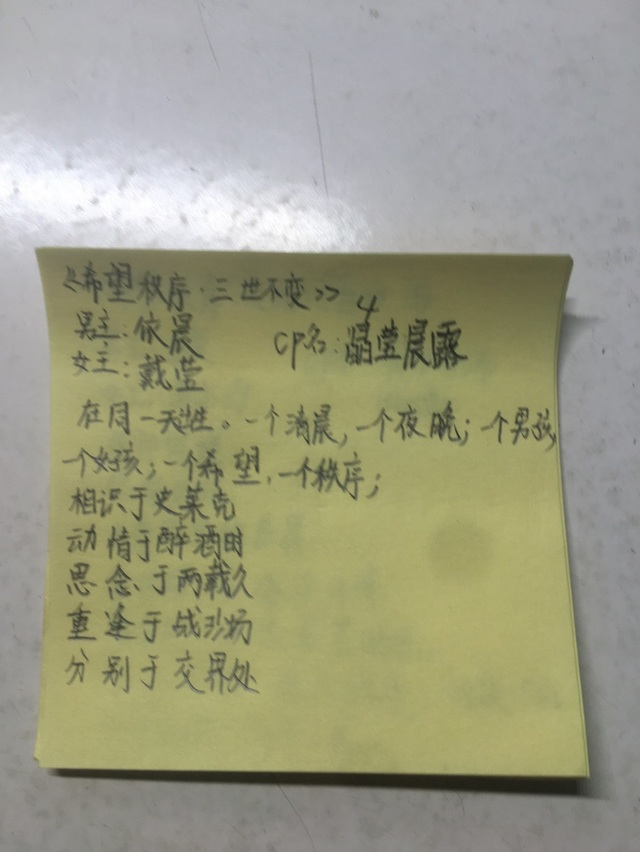 《希望秩序·三世不变》
4
男主:依晨
cp名:晶莹晨露
女主:戴莹
在同一天生。一个清晨,一个夜晚;一个男孩,
一个女孩;一个希望,一个秩序;
相识于史莱克
动情于醉酒时
思念于两载久
重逢于战场
分别于交界处